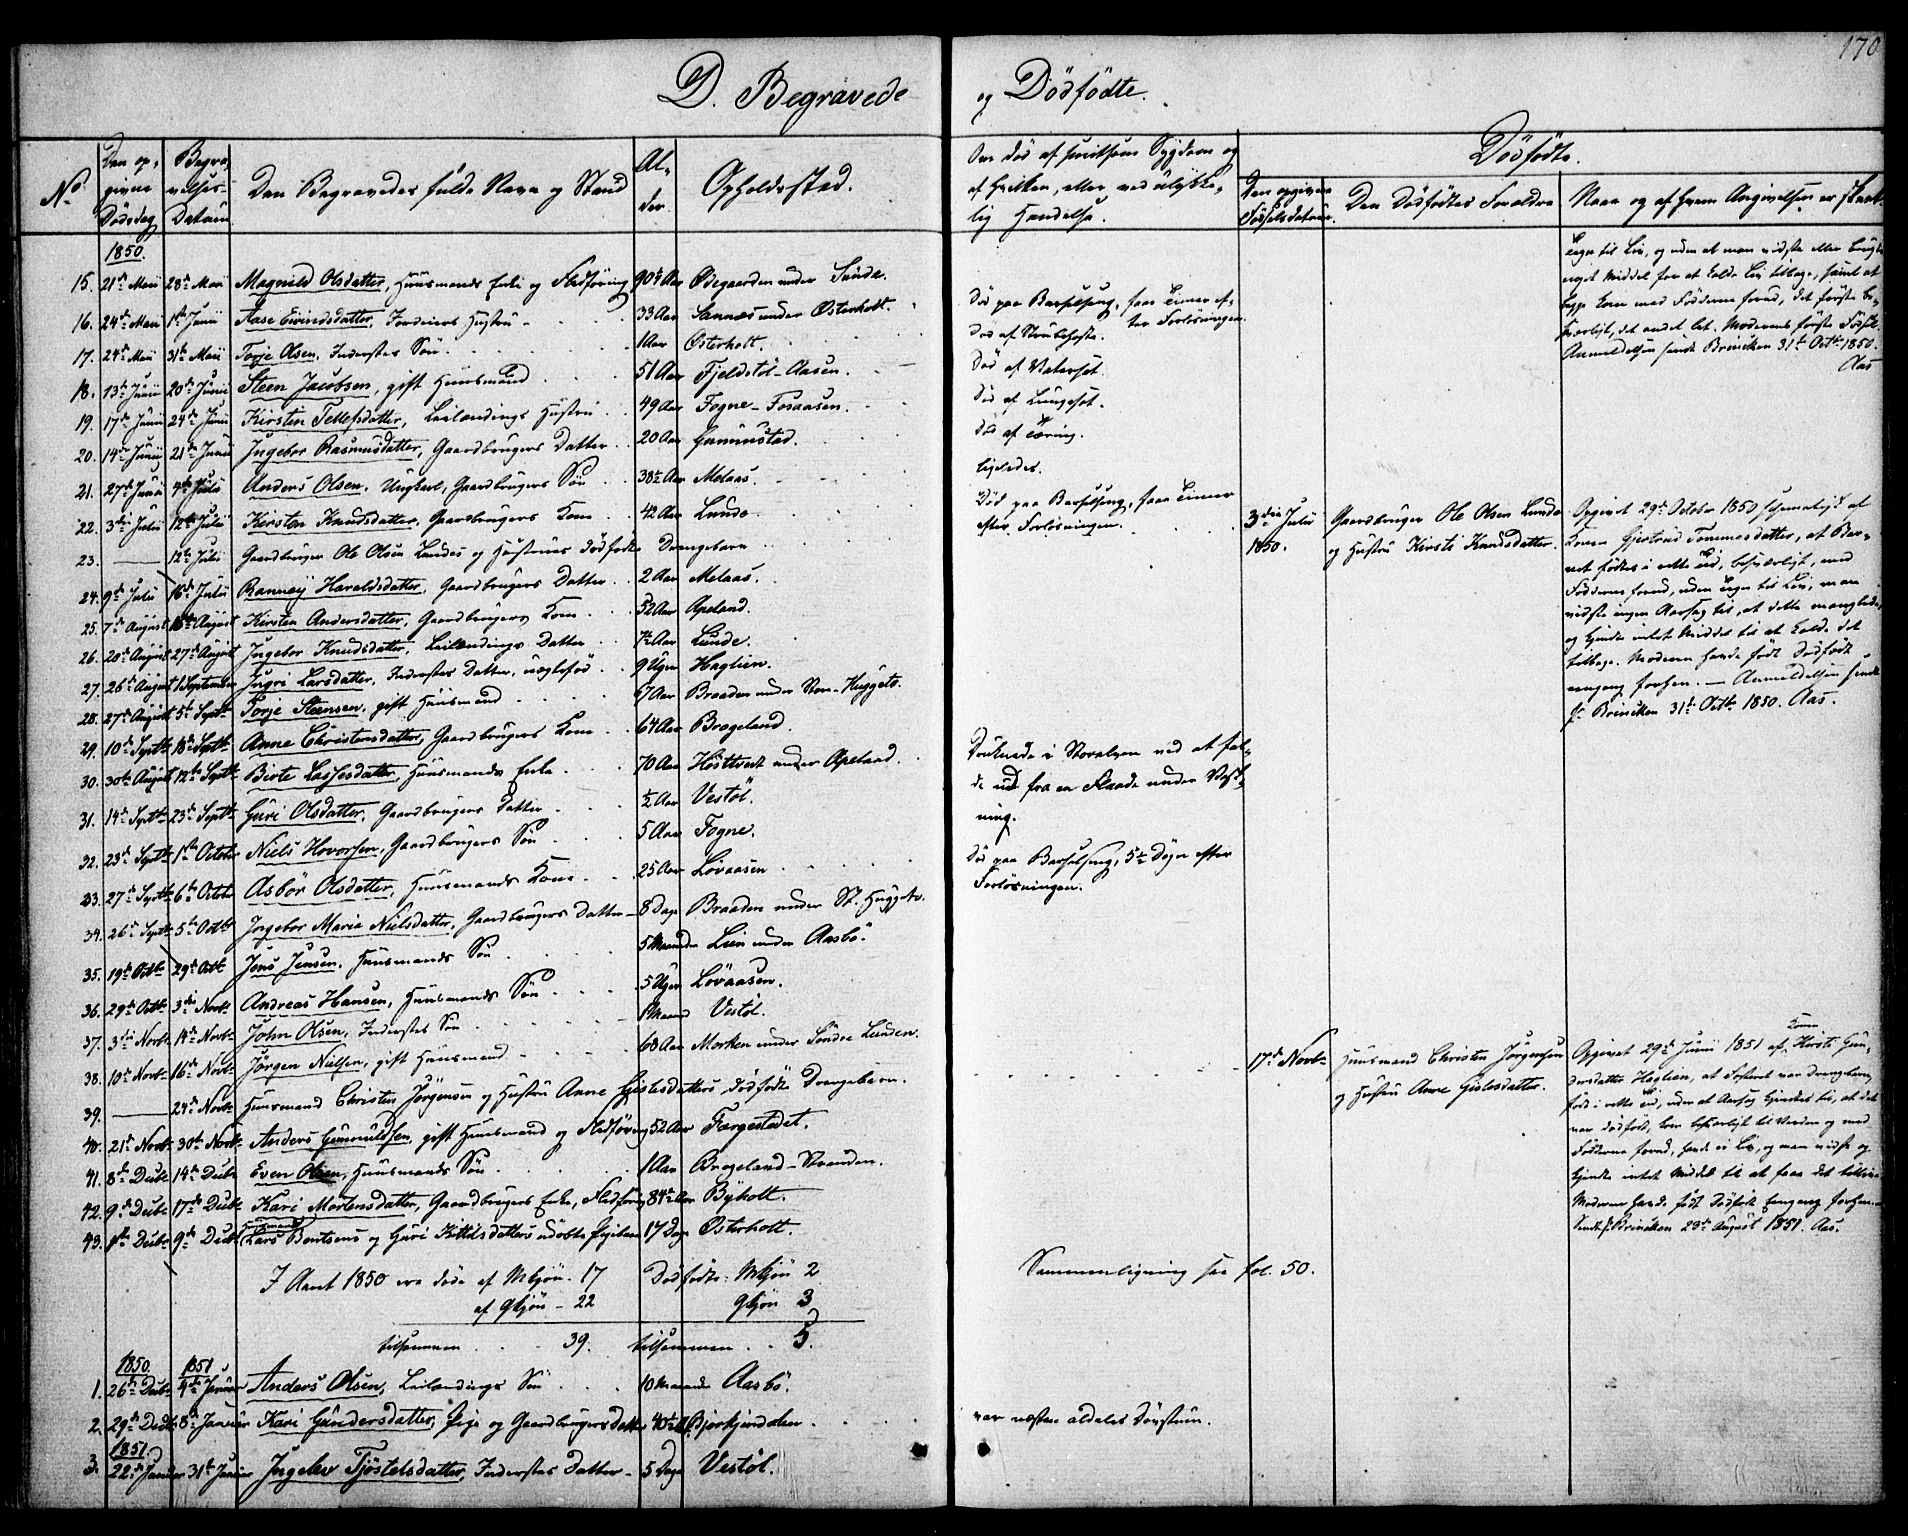 170
D. Begravede og Dödfödte.
No.
Den opgivne Dödsdag
Begravelses-Datum
Den Begravedes fulde Navn og Stand
Alder
Opholdssted.
Om död af smitsom Sygdom og af hvilken, eller ved ulykkelig Hændelse.
Dödfödte.
Den opgivne Födselsdatum.
Den Dödfödtes Forældre
Naar og af hvem Angivelsen er skeet
1850.
15. 21de Maii 28de Maii Magnild Olsdatter, Huusmands Enke og Flodföring 90 Aar Ödegaarden under Sunde.
16. 24de Maii 1ste Junii Aase Eivindsdatter, Forpagters Hustru 33 Aar Sannæs under Österholt. Död paa Barselseng, faa Timer efter Forlösningen.
17. 24de Maii 31te Maii Torje Olsen, Inderstes Sön 1 Aar Österholt. Död af Strubehoste.
18. 13de Junii 20de Junii Steen Jacobsen, gift Huusmand 51 Aar Fjeldstöl-Aasen. Död af Vatersot.
19. 17de Junii 24de Junii Kirsten Tellefsdatter, Leilændings Hustru 49 Aar Fogne-Foraasen. Död af Lungesot.
20. 14de Junii 21de Junii Ingebor Rasmusdatter, Gaardbrugers Datter 20 Aar Grimstad. Död af Tæring.
21. 27de Junii 4de Julii Anders Olsen, Ungkarl, Gaardbrugers Sön 38 Aar Melaas. ligeledes.
22. 3die Julii 12te Julii Kirsten Knudsdatter, Gaardbrugers Kone 42 Aar Lunde. Död paa Barselseng, faa Timer efter Forlösningen.
23. — 12te Julii Gaardbruger Ole Olsen Lundes og Hustrues dödfödte Drengebarn
24. 9de Julii 16de Julii Ranney Haraldsdatter, Gaardbrugers Datter 2 Aar Melaas.
25. 7de August 16de August Kirsten Andersdatter, Gaardbrugers Kone 52 Aar Apeland.
26. 20de August 27de August Ingebor Knudsdatter, Leilændings Datter 7 Aar Lunde.
27. 26de August 1 September Ingri Larsdatter, Inderstes Datter, uægtefödt 9 Uger Haglien.
28. 27de August 5te Septbr Torje Steensen, gift Huusmand 67 Aar Braaden under Stor-Huggets.
29. 10de Septbr 18de Septbr Anne Christensdatter, Gaardbrugers Kone 64 Aar Brogeland.
30. 30te August 12te Septbr Birte Lassesdatter, Huusmands Enke 70 Aar Hösttvedt under Apeland. Druknede i Storelven ved at falde ud fra en Flaade under Vestning.
31. 14de Septbr 23de Septbr Guri Olsdatter, Gaardbrugers Datter ½ Aar Vestöl.
32. 23de Septbr 1ste October Niels Hovorsen, Gaardbrugers Sön 5 Aar Fogne.
33. 27de Septbr 6te October Asbör Olsdatter, Huusmands Kone 25 Aar Lövaasen Död paa Barselseng, 5 Dage efter Forlösningen.
34. 26de Septbr 5te Octbr Ingebor Maria Nielsdatter, Gaardbrugers Datter 8 Dage Braaden under St. Huggets.
35. 19de Octbr 29de Octbr Jens Jensen, Huusmands Sön 5 Maaneder Lien under Aasbö.
36. 29de Octbr 3die Novbr Andreas Hansen, Huusmands Sön 5 Uger Lövaasen.
37. 3die Novbr 14de Novbr John Olsen, Inderstes Sön 1 Maaned Vestöl.
38. 10de Novbr 16de Novbr Jörgen Nielsen, gift Huusmand 68 Aar Morken under Söndre Lunden.
39. — 24de Novbr Huusmand Christen Jörgensen og Hustru Anne Gislesdatters dödfödte Drengebarn.
40. 21de Novbr 30te Novbr Anders Gunnuldsen, gift Huusmand og Flodföring 52 Aar Fargestedet.
41. 8de Decbr 14de Decbr Even Olsen, Huusmands Sön 1 Aar Brogeland-Stranden.
42. 9de Decbr 17de Decbr Kari Mortensdatter, Gaardbrugers Enke, Flodföring 84 Aar Byholt.
43. 1ste Decbr 9de Decbr Huusmand Lars Bentsens og Guri Kittilsdatters udöbte Pigebarn 17 Dage Österholt.
I Aaret 1850 ere döde af Mkjön. 17 Dödfödte: Mkjön 2
af Qkjön - 22 Qkjön 3
tilsammen 39. tilsammen 5.
Sammenligning see fol. 50.
1850. 1851
1. 26de Decbr 4de Januar Anders Olsen, Leilændings Sön 10 Maaneder Aasbö.
2. 29de Decbr 8de Januar Kari Gundersdatter, Pige og Gaardbrugers Datter 40 Aar Bjorkjendalen. var næsten aldeles Dövstum.
1851.
3. 22de Januar 31te Januar Ingelev Tjöstelsdatter, Inderstes Datter 5 Dage Vestöl.
Tegn til Liv, og uden at man vidste eller brugte
noget Middel for at kalde Liv tilbage, samt at
begge kom med Födderne forud, det förste be-
sværligt, det andet let. Moderens förste Födsel.
Anmeldelsen sendt Briniken 31te Octbr 1850.
Aas
3die Julii 1850.
Gaardbruger Ole Olsen Lunde
og Hustru Kirsti Knudsdatter.
Opgivet 29de October 1850 skematisk af
Konen Gjertrud Tommesdatter, at Bar-
net födtes i rette Tid, besværligt, med
Födderne forud, uden Tegn til Liv, man
vidste ingen Aarsag til, at dette manglede,
og kjendte intet Middel til at kalde det
tilbage. Moderen havde födt Dödfödt
engang forhen. — Anmeldelsen sendt
Hr Briniken 31te Octbr 1850. Aas.
17de Novbr
Huusmand Christen Jörgensen
og Hustru Anne Gislesdatter.
Opgivet 29de Junii 1851 af Konen Kirsti Gun-
dersdatter Haglien, at Fosteret var Drengebarn,
födt i rette Tid, uden at Aarsag kjendtes til, at det
var dödfödt, kom besværligt til Verden og med
Födderne forud, havde ei Liv, og man vidste og
kjendte intet Middel til at faae det tillive.
Moderen havde födt Dödfödt Engang forhen.
Sendt Hr Briniken 23de August 1851. Aas.